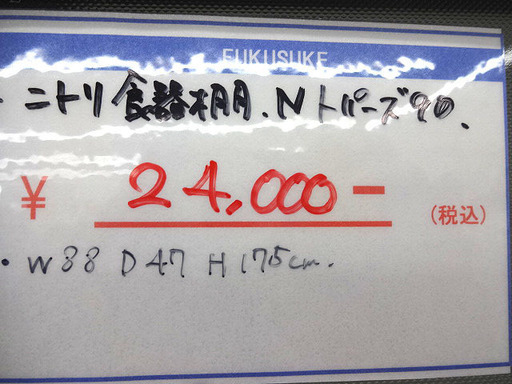 FUKUSUKE
・ニトリ 食器棚.Nトパーズ90.
¥ 24,000-
(税込)
・W88 D47 H175cm.